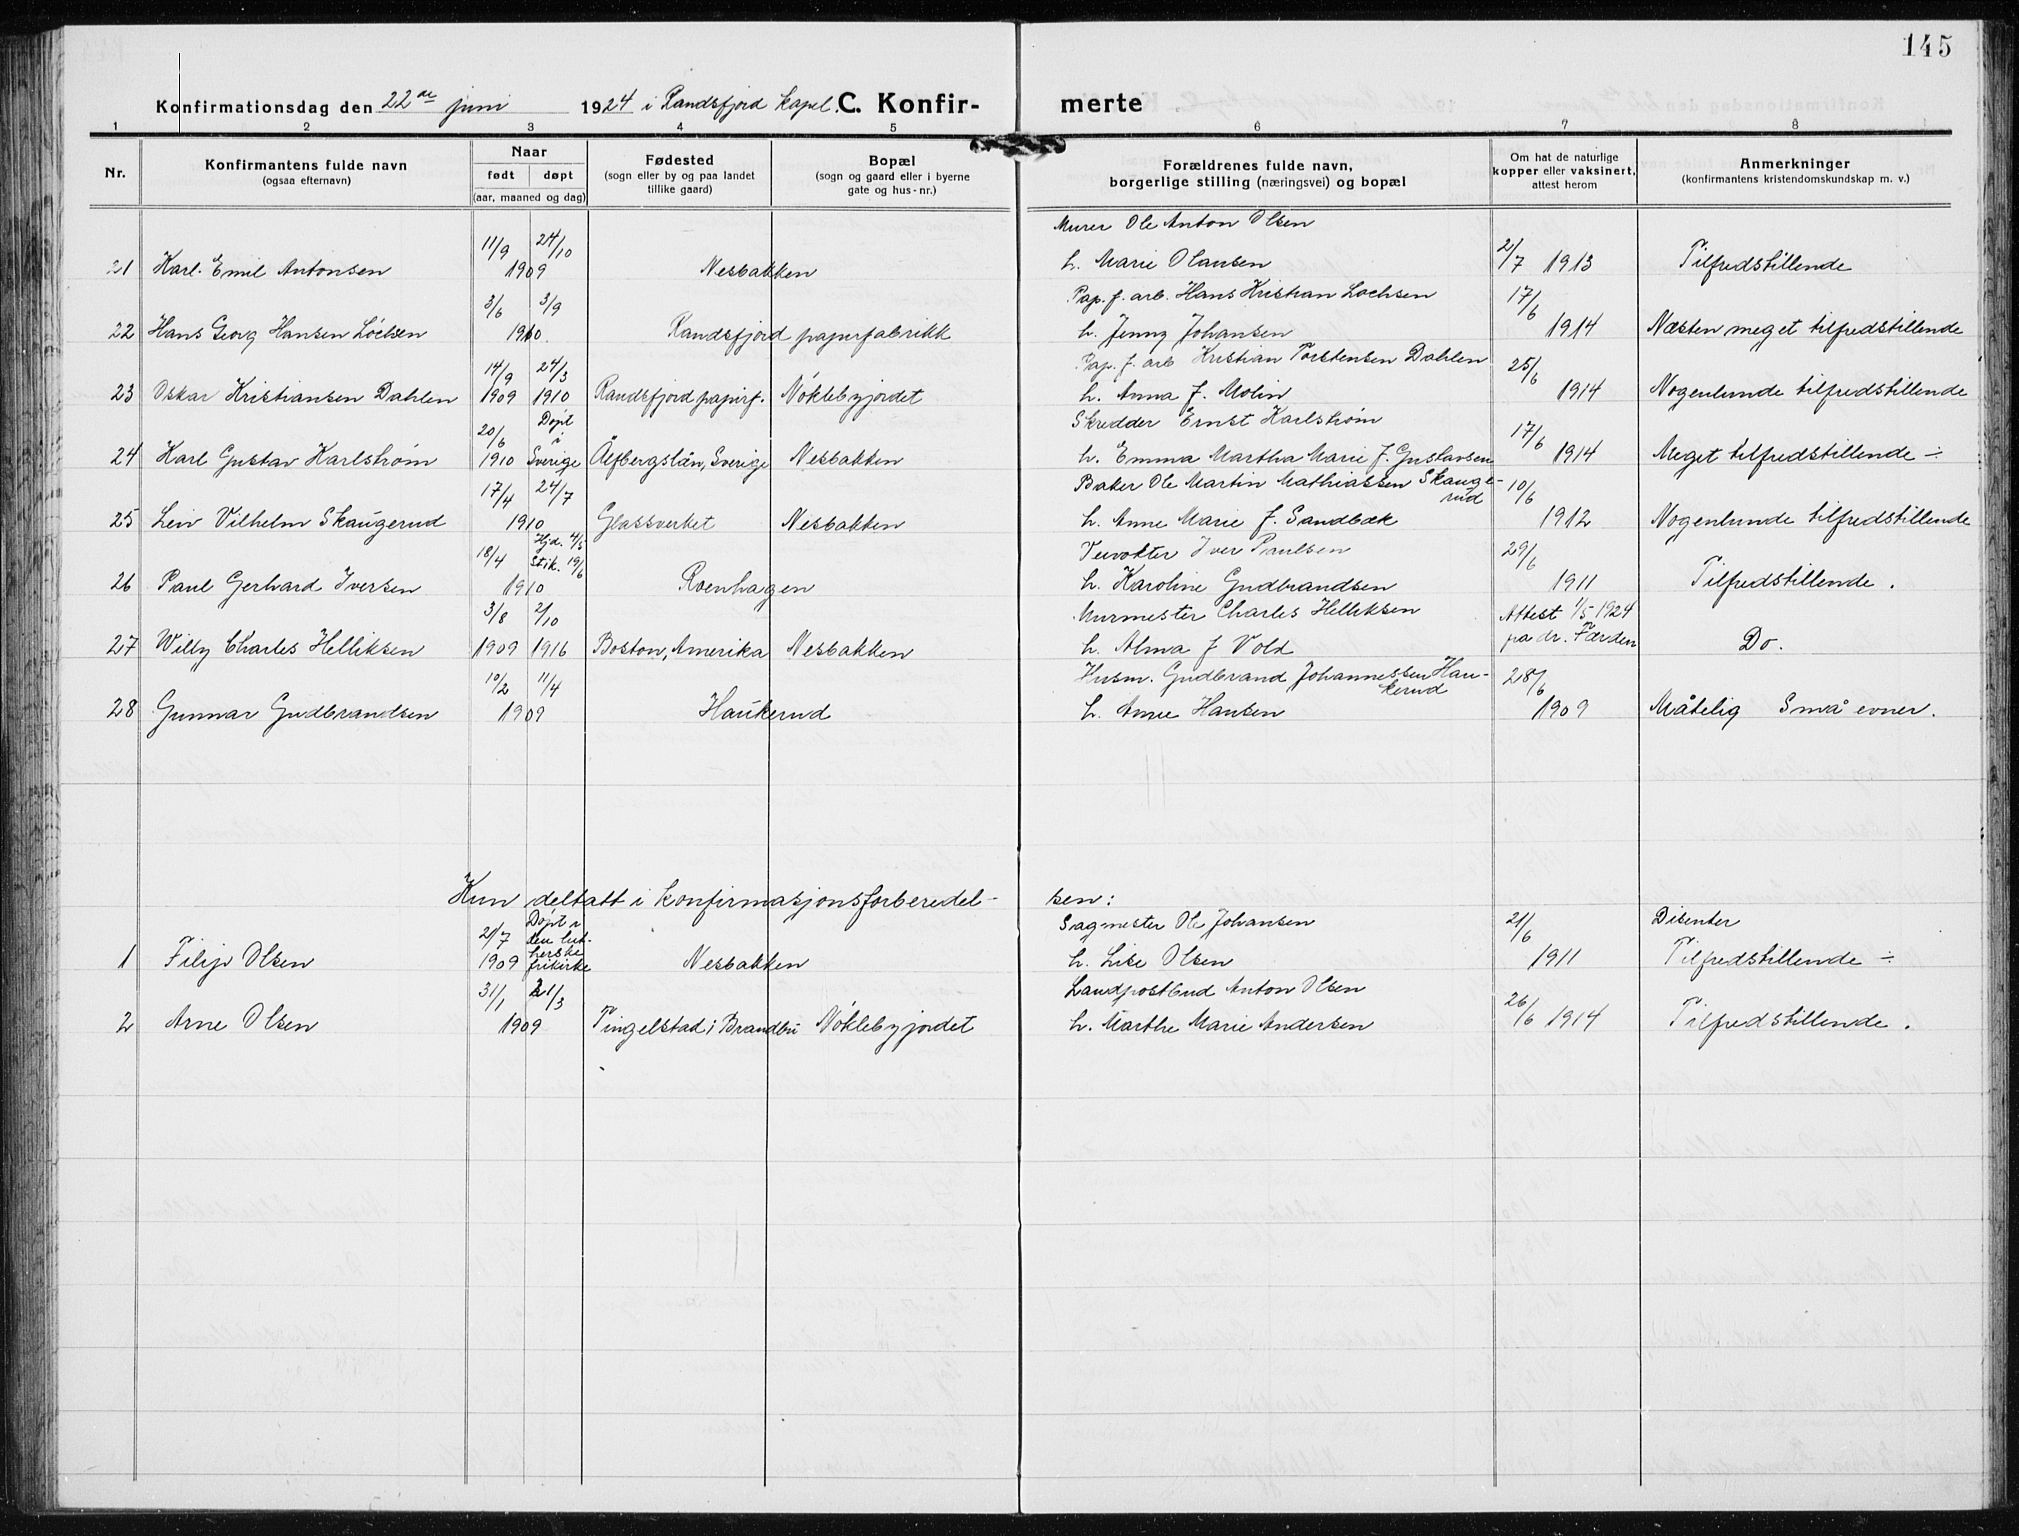 145
Konfirmationsdag den 22de juni 1924 i Randsfjord kapel. C. Konfir- merte
1 2 3 4 5 6 7 8
Nr.
Konfirmantens fulde navn
(ogsaa efternavn)
Naar
født døpt
(aar, maaned og dag)
Fødested
(sogn eller by og paa landet
tillike gaard)
Bopæl
(sogn og gaard eller i byerne
gate og hus-nr.)
Forældrenes fulde navn,
borgerlige stilling (næringsvei) og bopæl
Om hat de naturlige
kopper eller vaksinert,
attest herom
Anmerkninger
(konfirmantens kristendomskundskap m. v.)
11/9 24/10 Murer Ole Anton Olsen 2/7
21 Karl Emil Antonsen 1909 Nesbakken h. Marie Olausen 1913 Tilfredstillende
3/6 3/9 Pap. f. arb. Hans Kristian Lochsen 17/6
22 Hans Georg Hansen Lochsen 1910. Randsfjord papirfabrikk h. Jenny Johansen 1914 Næsten meget tilfredstillende
14/9 24/3 Pap. f. arb Kristian Torstensen Dahlen 25/6
23 Oskar Kristiansen Dahlen 1909 1910 Randsfjord papirf. Nøklebyjordet h. Anna f. Molin 1914 Nogenlunde tilfredstillende
20/6 Døpt i Skredder Ernst Karlstrøm 17/6
24 Karl Gustav Karlstrøm 1910 Sverige Älfbergslän, Sverige Nesbakken h. Emma Martha Marie f. Gustavsen 1914 Meget tilfredstillende ÷
17/4 24/7 Baker Ole Martin Mathiassen Skauge- rud 10/6
25 Leiv Vilhelm Skaugerud 1910 Glassverket Nesbakken h. Anne Marie f. Sandbæk 1912 Nogenlunde tilfredstillende
18/4 Hjd. 4/5 Stik. 19/6 Veivokter Iver Paulsen 29/6
26 Paul Gerhard Iversen 1910 Roenhagen h. Karoline Gudbrandsen 1911 Tilfredstillende.
3/8 2/10 Murmester Charles Helliksen Attest 1/5 1924
27 Willy Charles Helliksen 1909 1916 Boston, Amerika Nesbakken h. Alma f Vold pa dr. Færden Do.
10/2 11/4 Husm. Gudbrand Johannessen Hau- kerud 28/6
28 Gunnar Gudbrandsen 1909 Haukerud h. Anne Hansen 1909 Måtelig Små evner.
Kun deltatt i konfirmasjonsforberedel- sen:
21/7 Døpt i den lut- herske frikirke Sagmester Ole Johansen 21/6 Disenter
1 Filip Olsen 1909 Nesbakken h. Lise Olsen 1911 Tilfredstillende ÷
31/1 21/3 Landpostbud Anton Olsen 26/6
2 Arne Olsen 1909 Tingelstad i Brandbu Nøklebyjordet h. Marthe Marie Andersen 1914 Tilfredstillende.